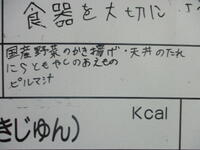 食器を大切に
国産野菜のかき揚げ・天丼のたれ
にらともやしのあえもの
ピルマ汁
Kcal
きじゅん)